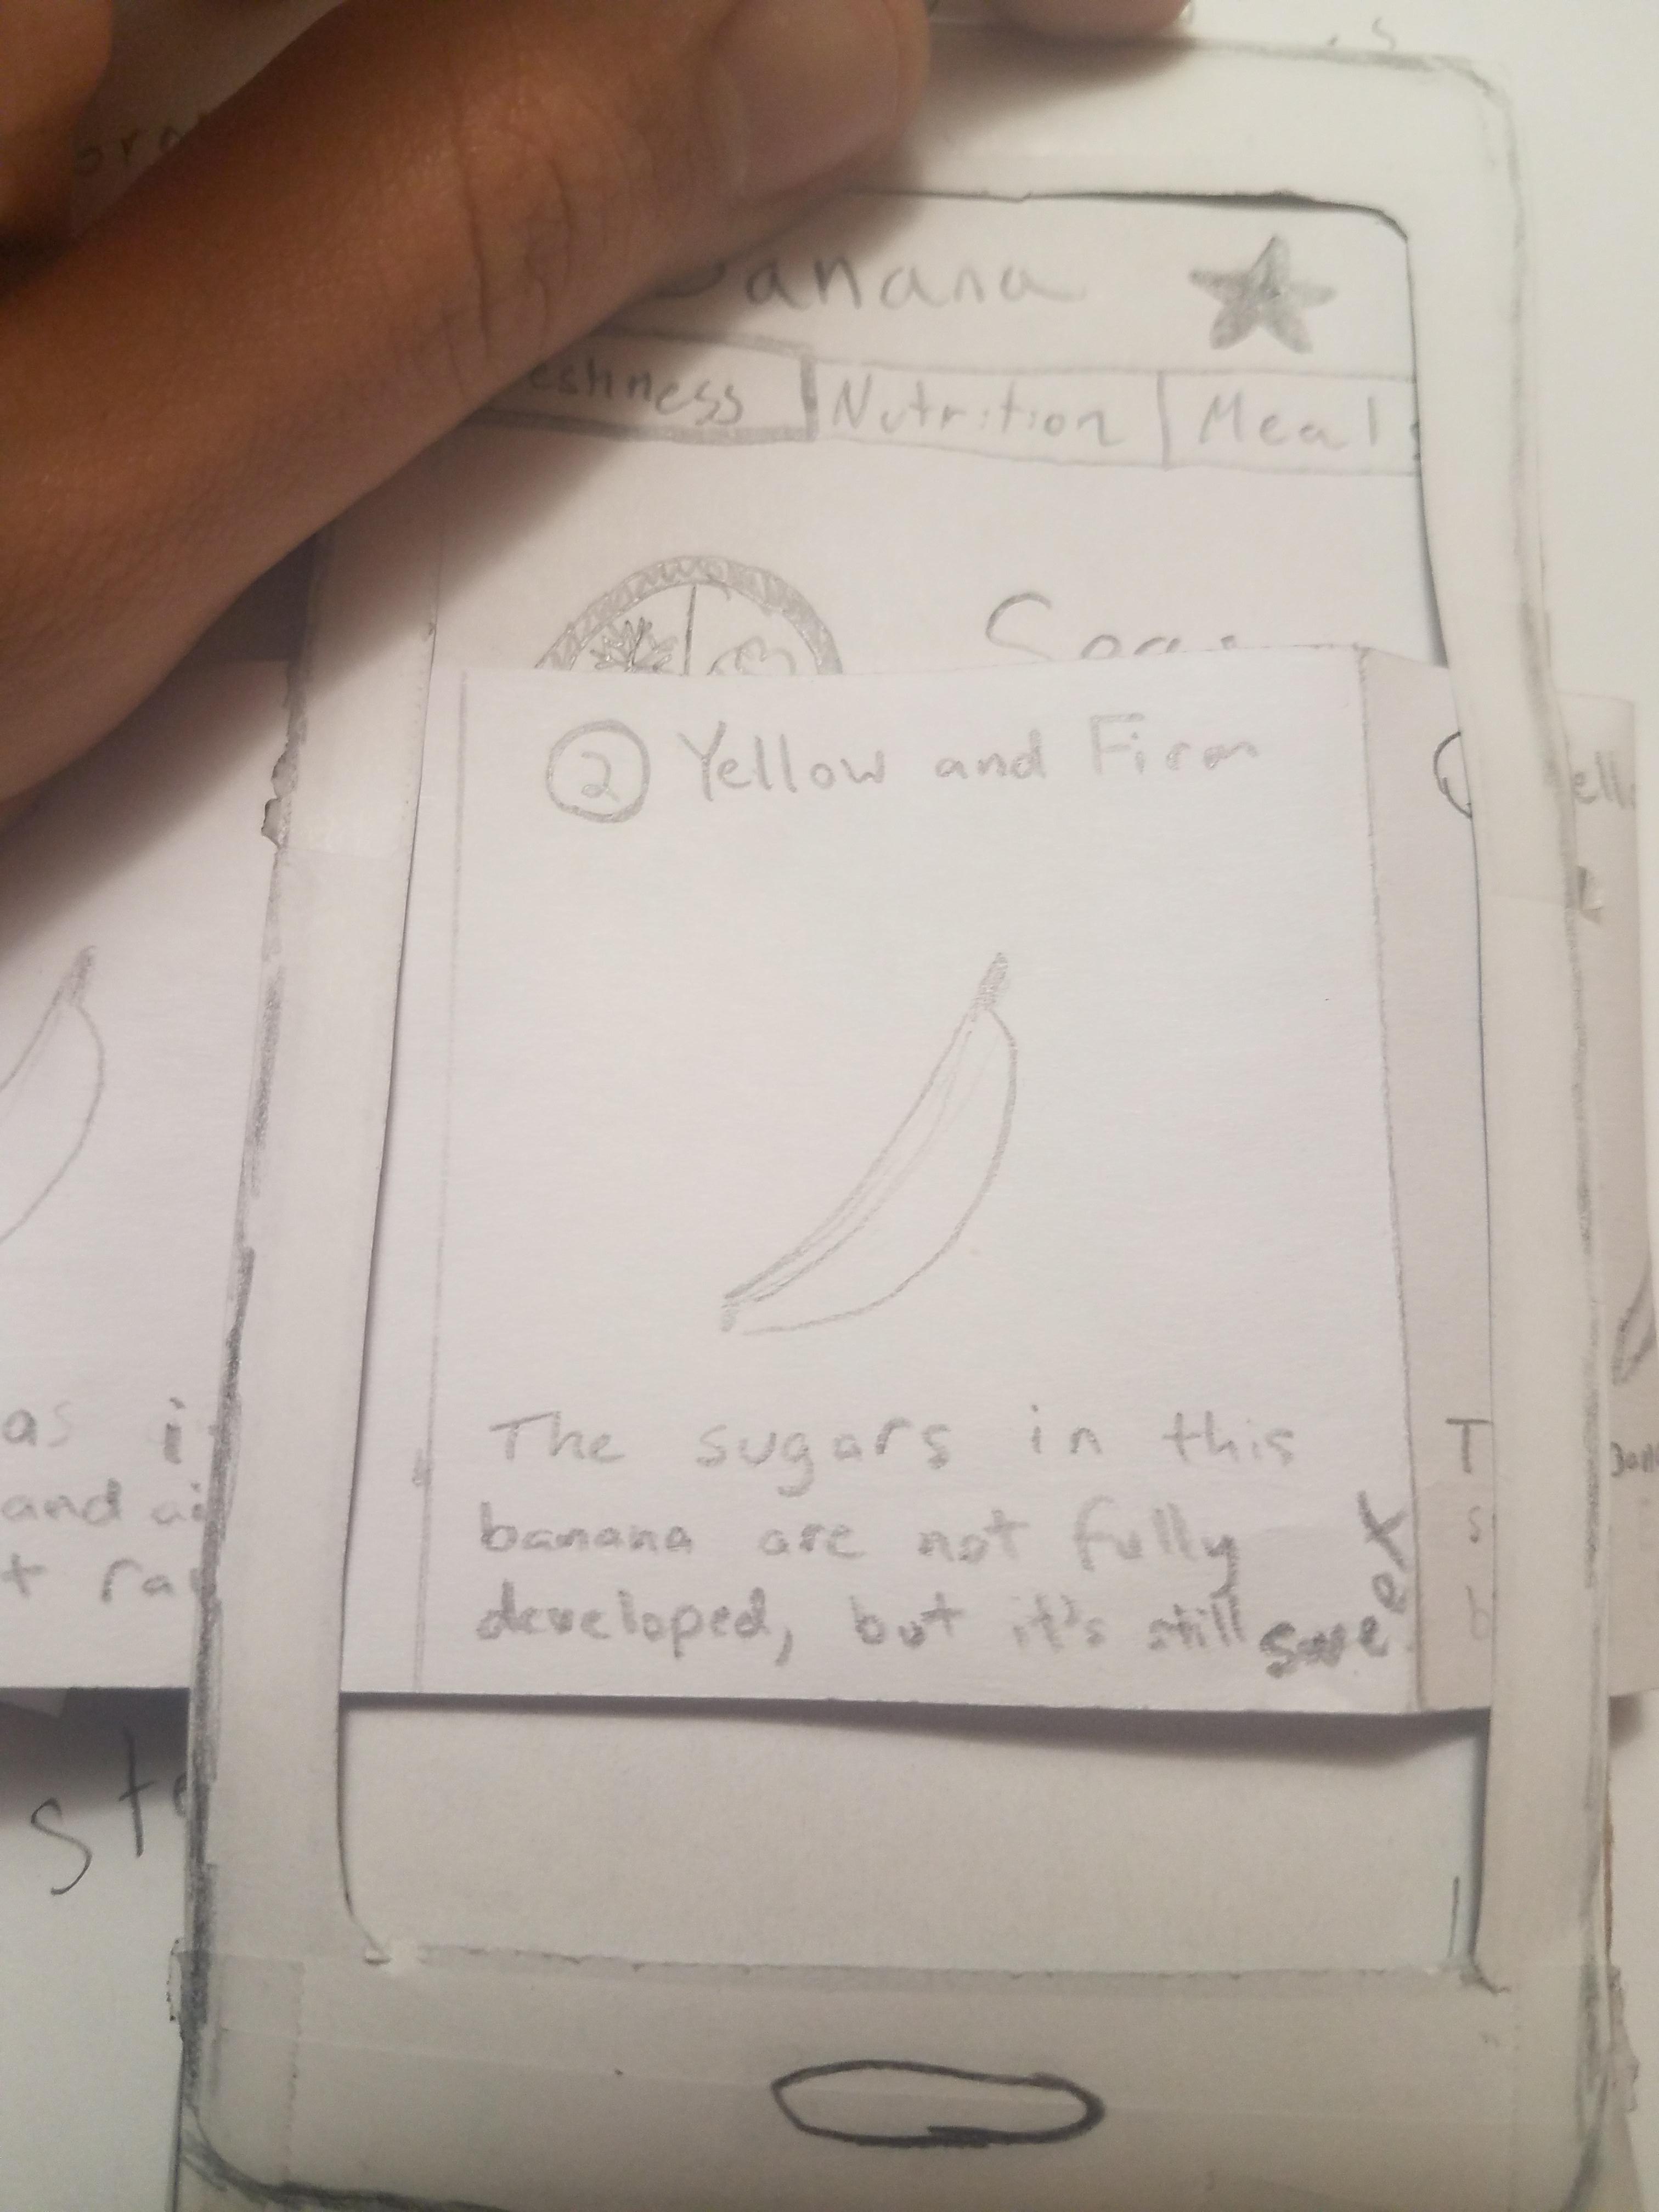 anana
eshness Nutrition Meal
② Yellow and Firm
ello
The sugars in this
banana are not fully
developed, but it's still sweet
as i
and ai
t ra
T
s
b
st